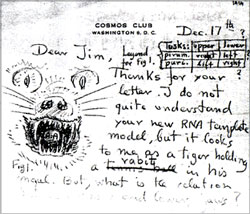 COSMOS CLUB
WASHINGTON 5, D.C.
Dec. 17th
Dear Jim,
Legend for Fig 1.
looks: upper lower
pyrim. right left
pure. left right
?
Thanks for your
letter. I do not
quite understand
your new RNA template
model, but it looks
to me as a tiger holding
rabit
a tennis ball in his
Fig 1.
But, what is the relation
?